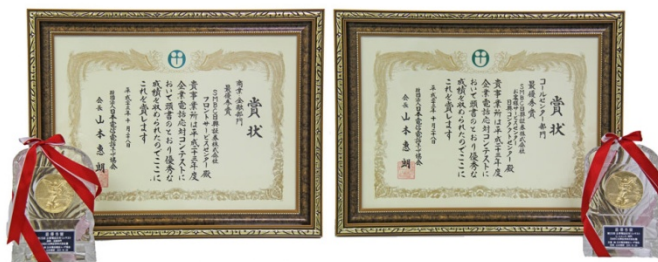 賞状
商業・金融部門
最優秀賞
SMBC日興証券株式会社
フロントサービスセンター殿
貴事業所は平成二十三年度
企業電話応対コンテストに
おいて頭書のとおり優秀な
成績を収められたのでここに
これを賞します
平成二十三年十月二十八日
財団法人日本電信電話ユーザ協会
会長 山本惠朗
賞状
コールセンター部門
最優秀賞
SMBC日興証券株式会社
日興コンタクトセンター
殿
貴事業所は平成二十三年度
企業電話応対コンテストに
おいて頭書のとおり優秀な
成績を収められたのでここに
これを賞します
平成二十三年十月二十八日
財団法人日本電信電話ユーザ協会
会長 山本惠朗
最優秀賞
最優秀賞